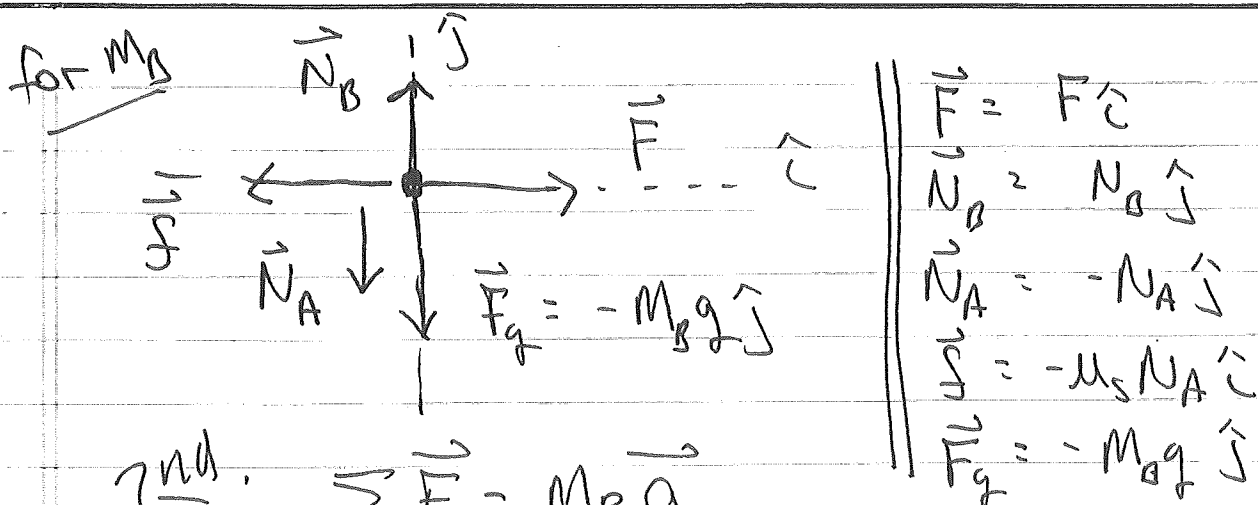 for M_B
N⃗_B
ĵ
F⃗
î
f⃗
N⃗_A
F⃗_g = -M_B g ĵ
2nd. ΣF⃗ = M_B a⃗
F⃗ = F î
N⃗_B = N_B ĵ
N⃗_A = -N_A ĵ
f⃗ = -μ_s N_A î
F⃗_g = -M_B g ĵ